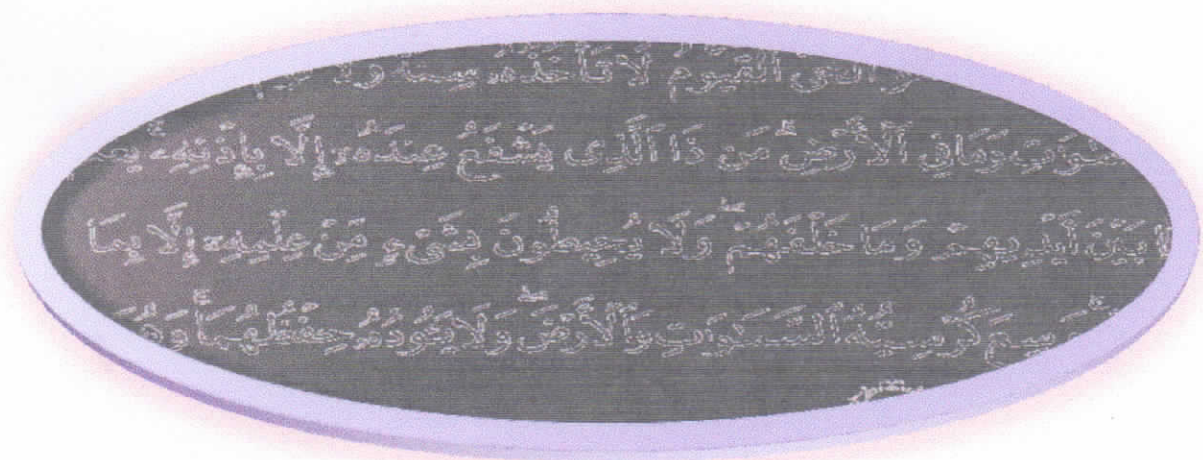 ٱلۡقَيُّومُ لَا تَأۡخُذُهُۥ سِنَةٞ وَلَا
وَمَا فِي ٱلۡأَرۡضِۗ مَن ذَا ٱلَّذِي يَشۡفَعُ عِندَهُۥٓ إِلَّا بِإِذۡنِهِۦۚ
بَيۡنَ أَيۡدِيهِمۡ وَمَا خَلۡفَهُمۡۖ وَلَا يُحِيطُونَ بِشَيۡءٖ مِّنۡ عِلۡمِهِۦٓ إِلَّا بِمَا
كُرۡسِيُّهُ ٱلسَّمَٰوَٰتِ وَٱلۡأَرۡضَۖ وَلَا يَـُٔودُهُۥ حِفۡظُهُمَاۚ